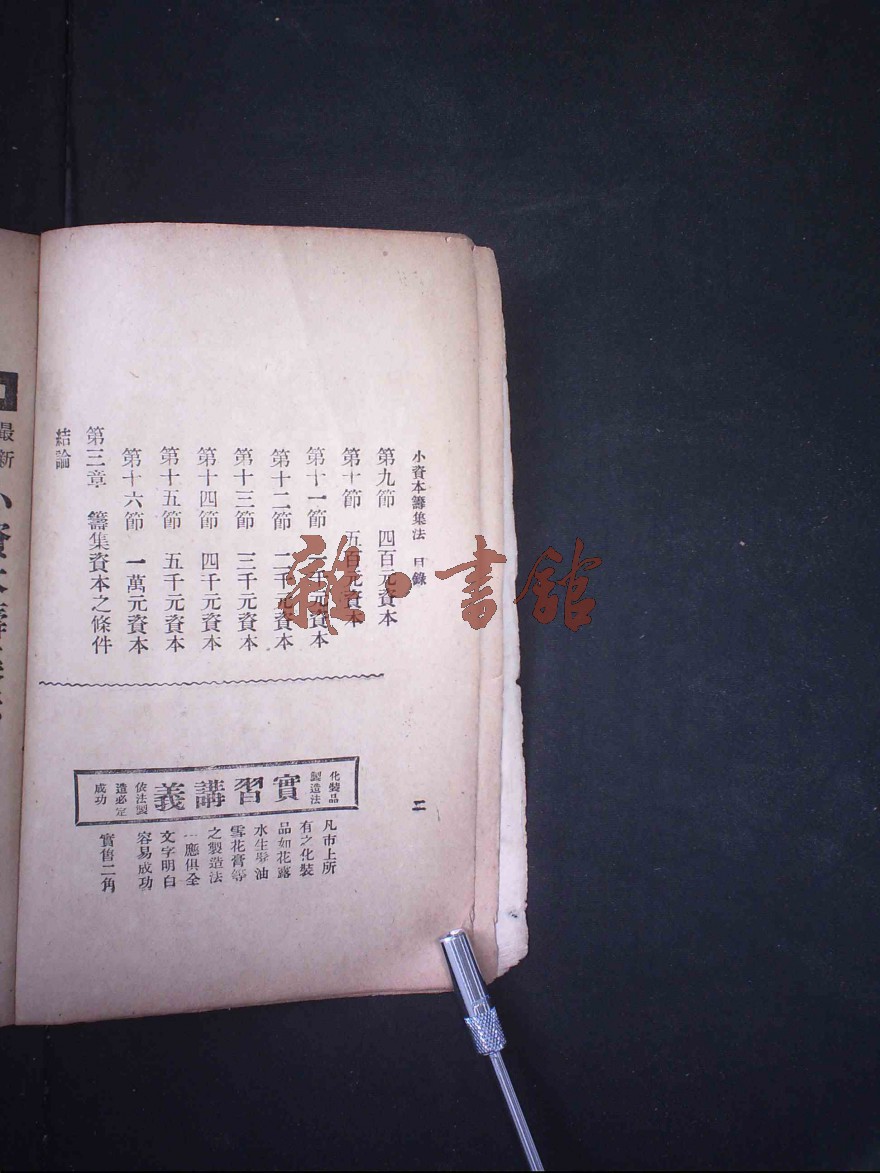 小資本籌集法 目錄
第九節 四百元資本
第十節 五百元資本
第十一節 一千元資本
第十二節 二千元資本
第十三節 三千元資本
第十四節 四千元資本
第十五節 五千元資本
第十六節 一萬元資本
第三章 籌集資本之條件
結論
二
化裝品
製造法
實習講義
依法製
造必定
成功
凡市上所
有之化裝
品如花露
水生髮油
雪花膏等
之製造法
一應俱全
文字明白
容易成功
實售二角
最新
雜·書館